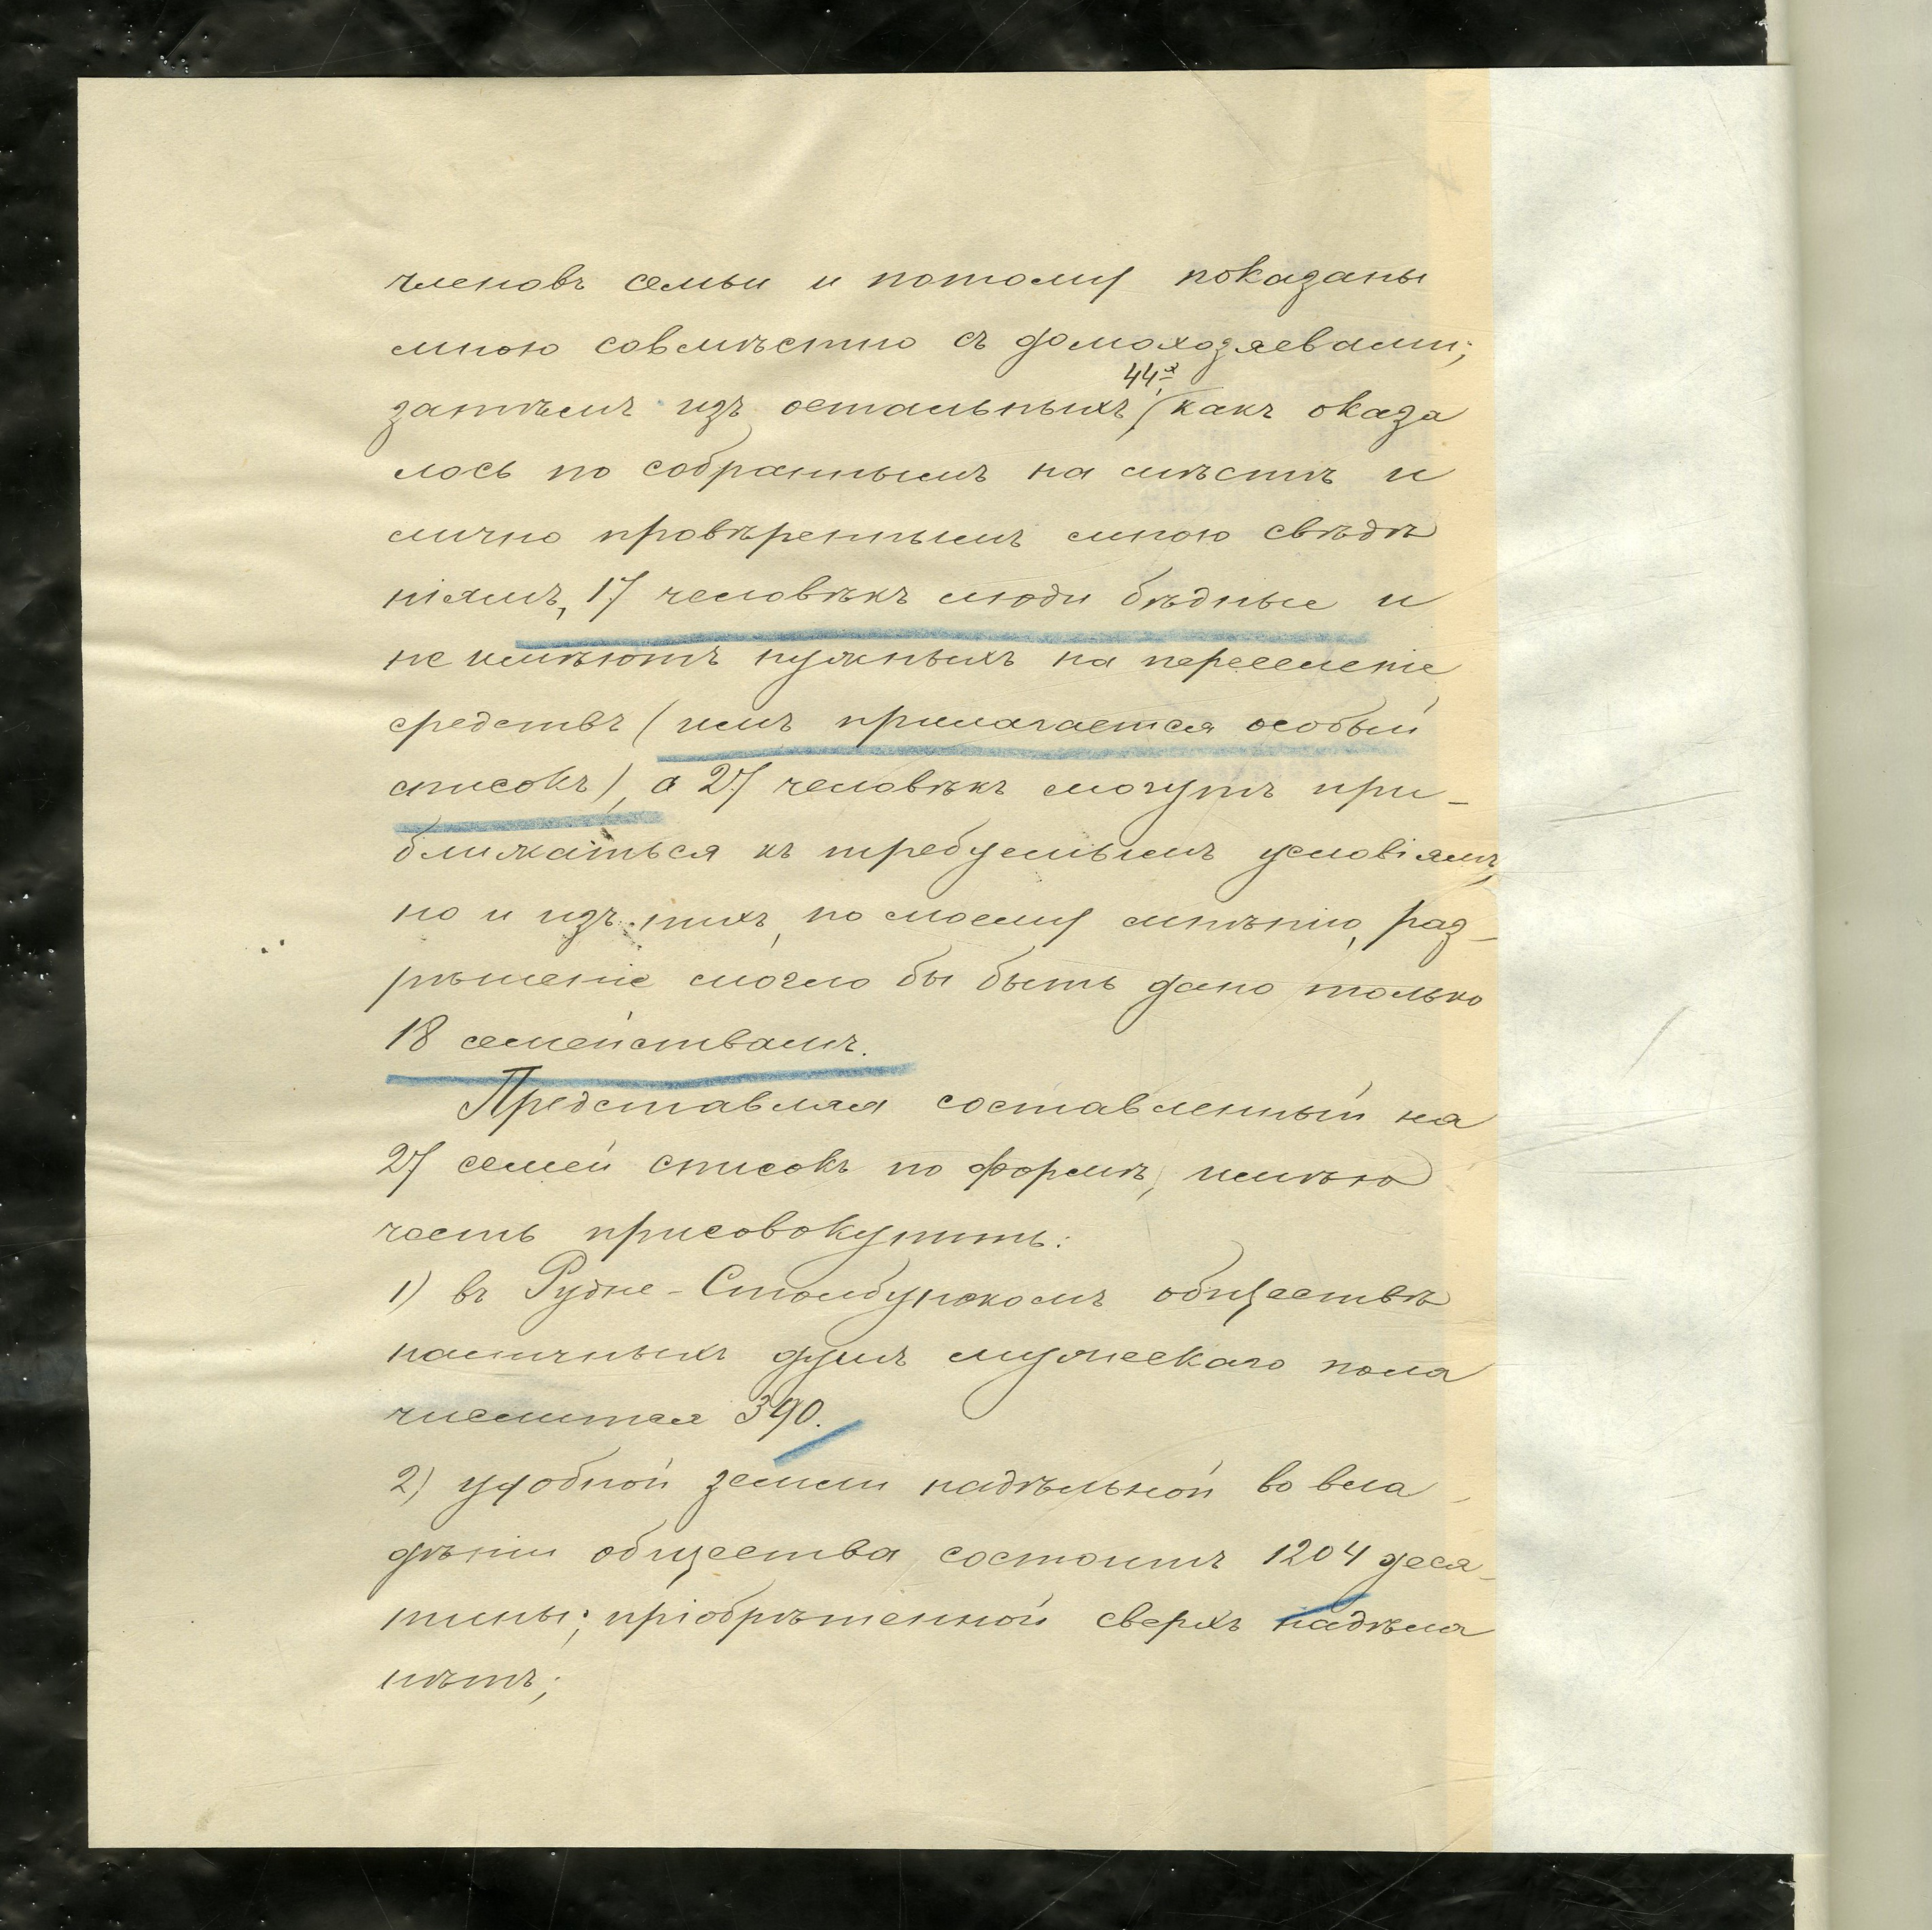 членовъ семьи и потому показаны
мною совмѣстно съ домохозяевами;
затѣмъ изъ остальныхъ 44х, какъ оказа
лось по собраннымъ на мѣстѣ и
лично провѣреннымъ мною свѣдѣ
ніямъ, 17 человѣкъ люди бѣдные и
не имѣютъ нужныхъ на переселеніе
средствъ (имъ прилагается особый
списокъ), а 27 человѣкъ могутъ при-
ближаться къ требуемымъ условіямъ,
но и изъ нихъ, по моему мнѣнію, раз-
рѣшеніе могло бы быть дано только
18 семействамъ.
Представляя составленный на
27 семей списокъ по формѣ, имѣю
честь присовокупить:
1) въ Рудне-Столбунскомъ обществѣ
наличныхъ душъ мужескаго пола
числится 390.
2) удобной земли надѣльной во вла-
дѣніи общества состоитъ 1204 деся-
тины; пріобрѣтенной сверхъ надѣла
нѣтъ;